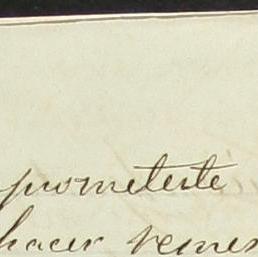 prometiste
hacer remes